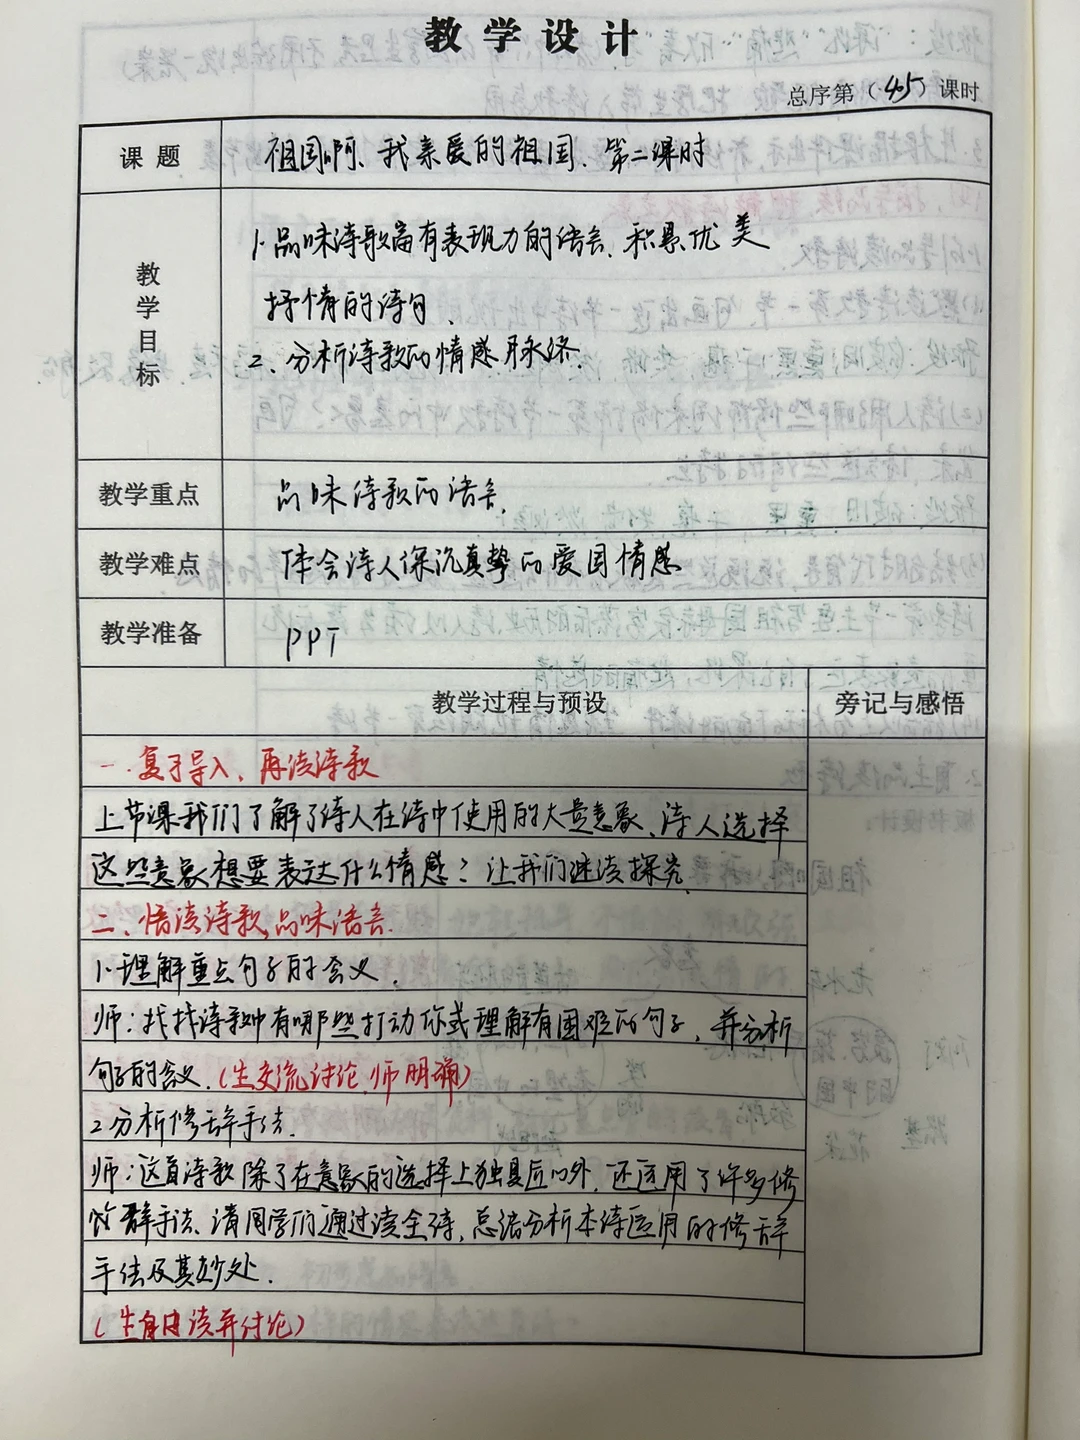 教学设计
总序第（45）课时
课题 祖国啊、我亲爱的祖国、第二课时
教学目标
1.品味诗歌富有表现力的语言、积累优美
抒情的诗句、
2、分析诗歌的情感脉络.
教学重点 品味诗歌的语言.
教学难点 体会诗人深沉真挚的爱国情感
教学准备 PPT
教学过程与预设 旁记与感悟
一.复习导入、再读诗歌
上节课我们了解了诗人在诗中使用的大量意象、诗人选择
这些意象想要表达什么情感？让我们继续探究.
二、悟读诗歌,品味语言.
1.理解重点句子的含义.
师：找找诗歌中有哪些打动你或理解有困难的句子，并分析
句子的含义.（生交流讨论,师明确）
2.分析修辞手法.
师：这首诗歌除了在意象的选择上独具匠心外，还运用了许多修
辞手法、请同学们通过读全诗，总结分析本诗运用的修辞
手法及其妙处.
（生自由读并讨论）